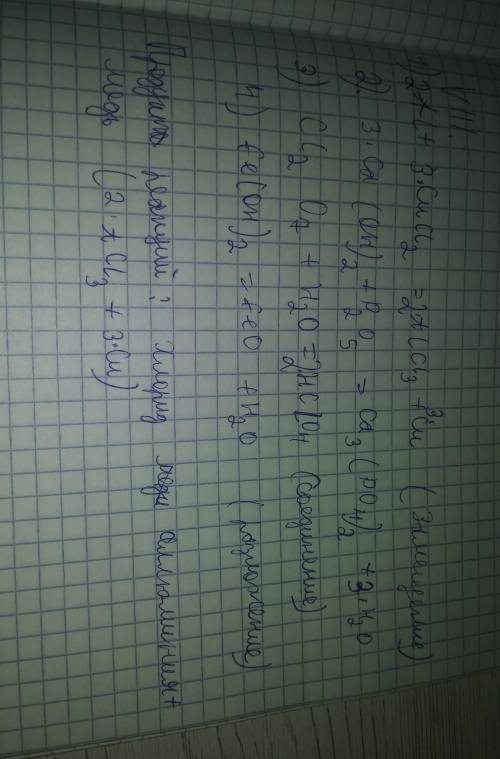 VIII.
1) 2Al + 3·CuCl2 = 2AlCl3 + 3Cu (Замещение)
2). 3·Ca (OH)2 + P2O5 = Ca3(PO4)2 + 3·H2O
3) Cl2 O7 + H2O = 2HClO4 (соединение)
4) Fe(OH)2 = FeO + H2O (разложение)
Продукты реакций: Хлорид меди аллюминия +
медь (2·AlCl3 + 3·Cu)